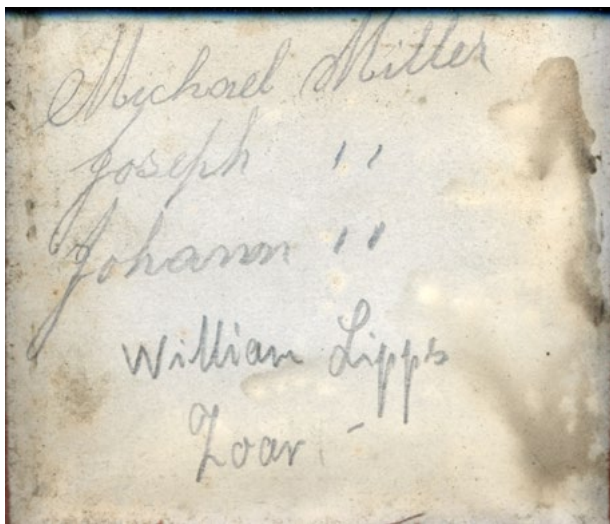 Michael Miller
Joseph "
Johann "
William Lipps
Zoar -